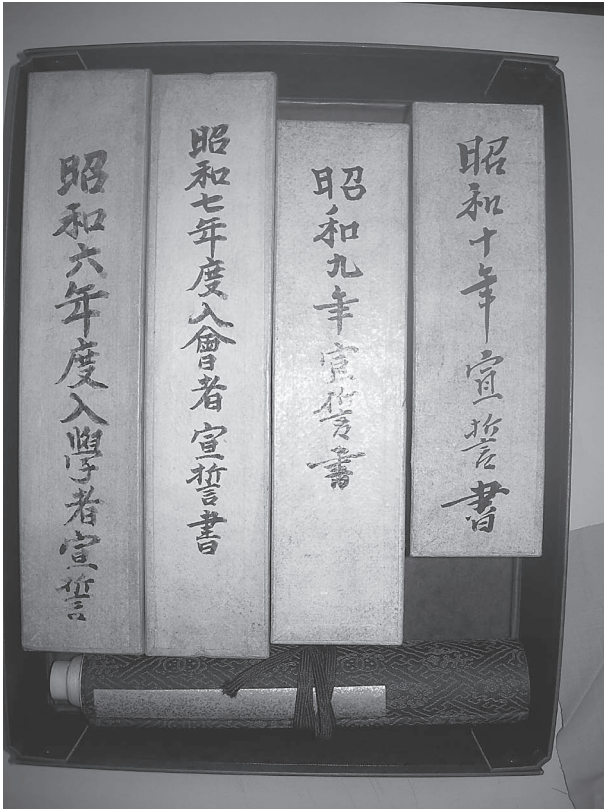 昭和十年宣誓書
昭和九年宣誓書
昭和七年度入會者宣誓書
昭和六年度入學者宣誓